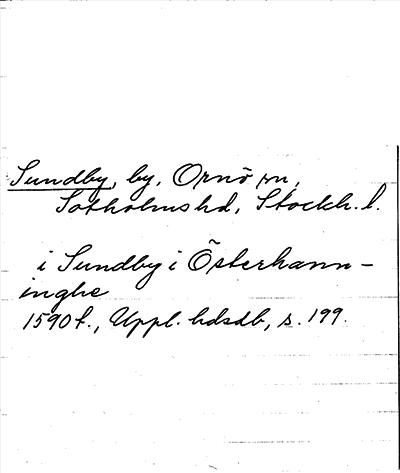 Sundby, by, Ornö sn,
Sotholms hd, Stockh. l.
i Sundby i Österhann-
inghe
1590 f., Uppl. hdsdb, s. 199.